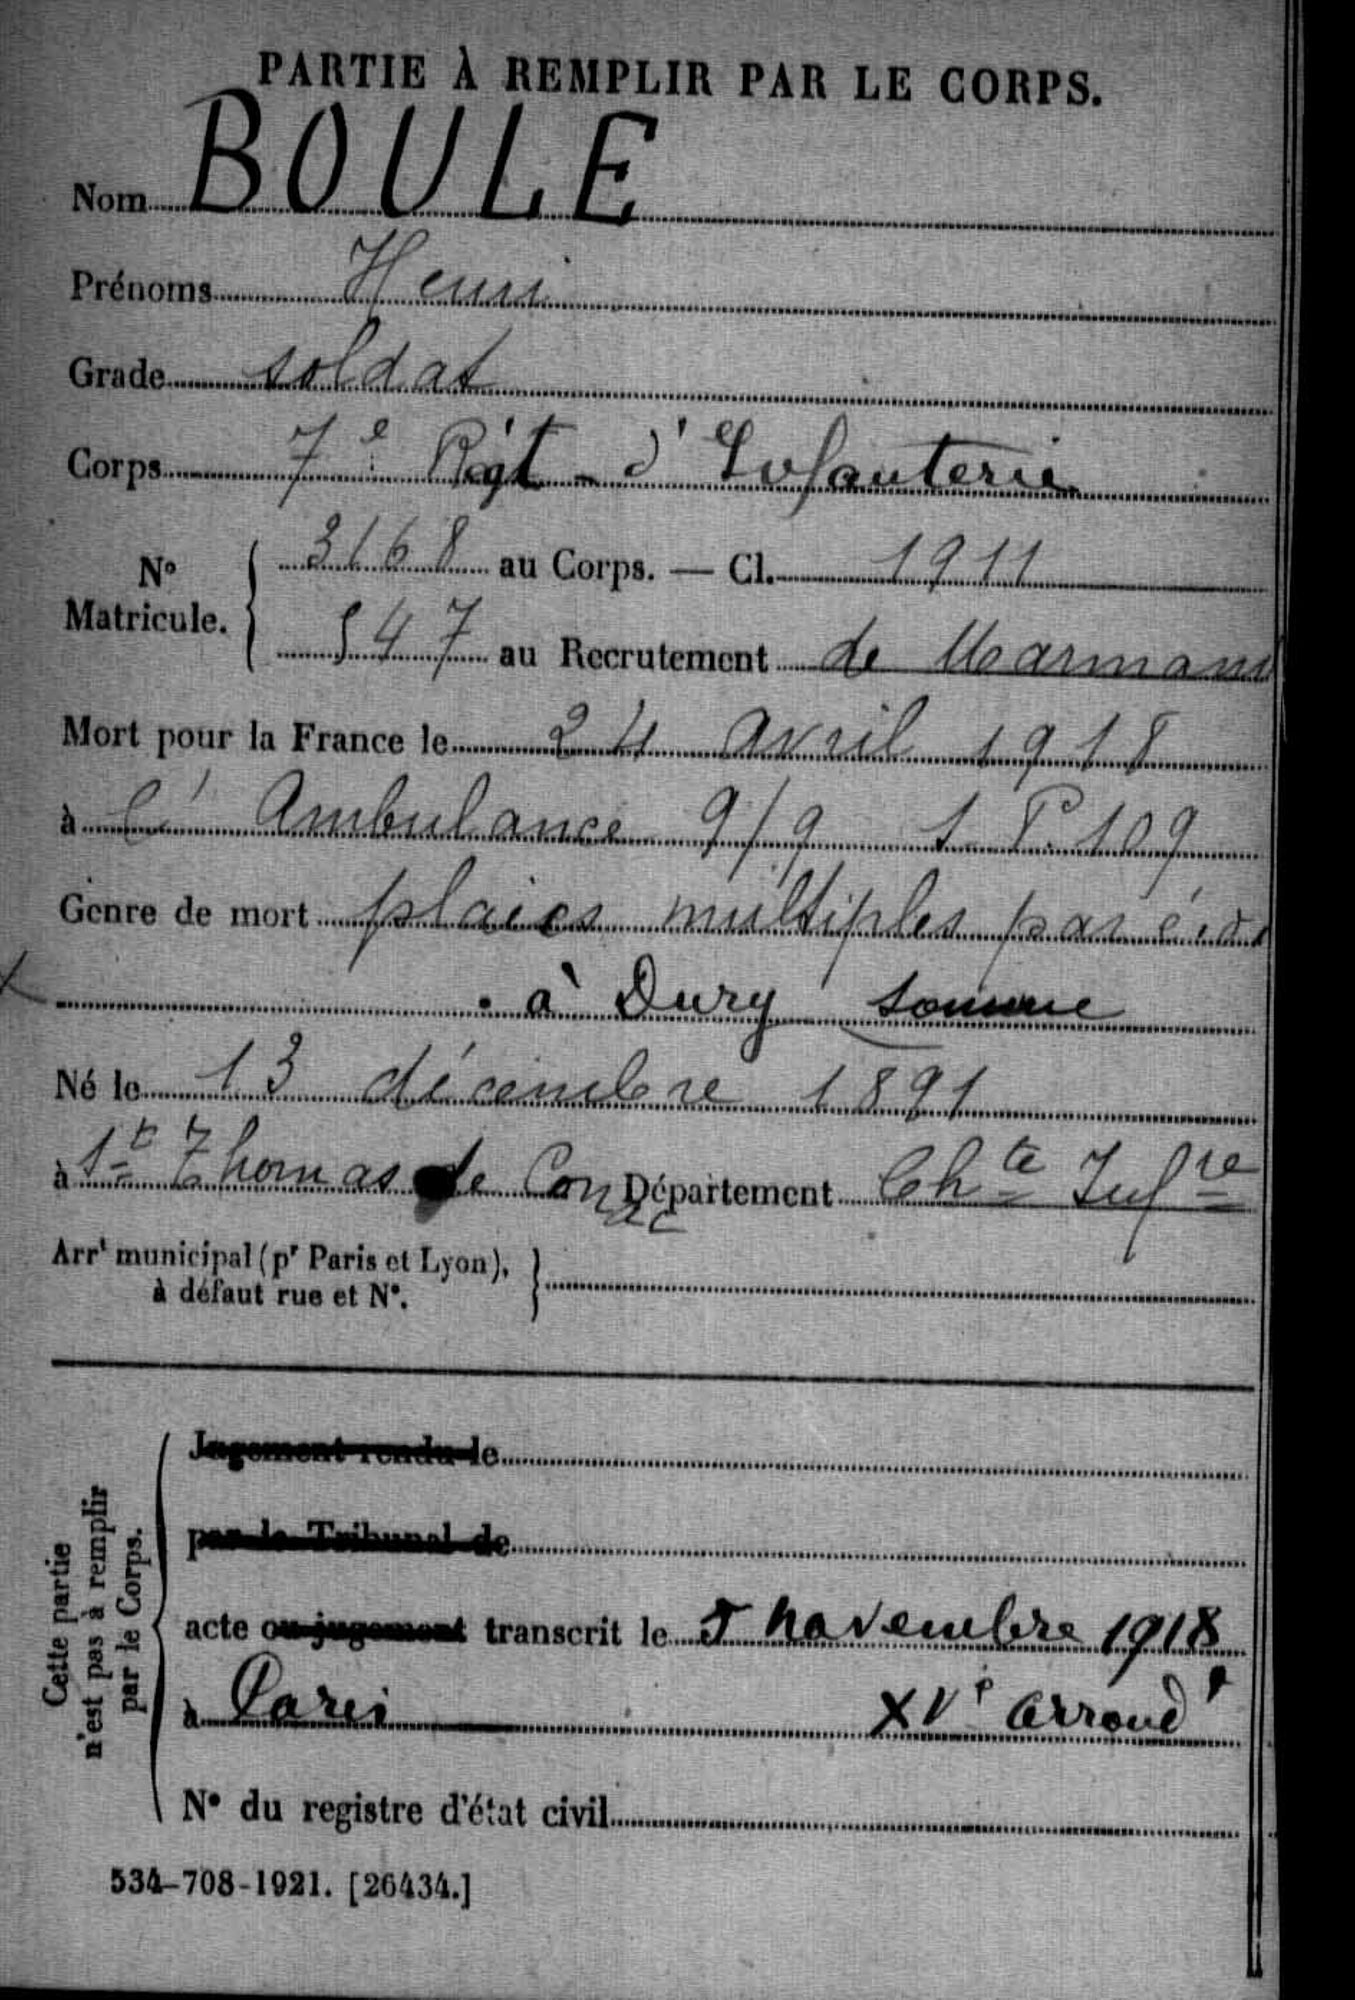 PARTIE À REMPLIR PAR LE CORPS.
Nom BOULE
Prénoms Henri
Grade soldat
Corps 7e Régt d'Infanterie
No Matricule. 3168 au Corps. — Cl. 1911
547 au Recrutement de Marmande
Mort pour la France le 24 avril 1918
à l'Ambulance 9/9 S.P. 109
Genre de mort plaies multiples par
à Dury Somme
Né le 13 décembre 1891
à St Thomas de Conac Département Chte Infre
Arrt municipal (pr Paris et Lyon),
à défaut rue et No.
Cette partie
n'est pas à remplir
par le Corps.
Jugement rendu le
par le Tribunal de
acte ou jugement transcrit le 5 novembre 1918
à Paris XVe Arrondt
No du registre d'état civil
534-708-1921. [26434.]